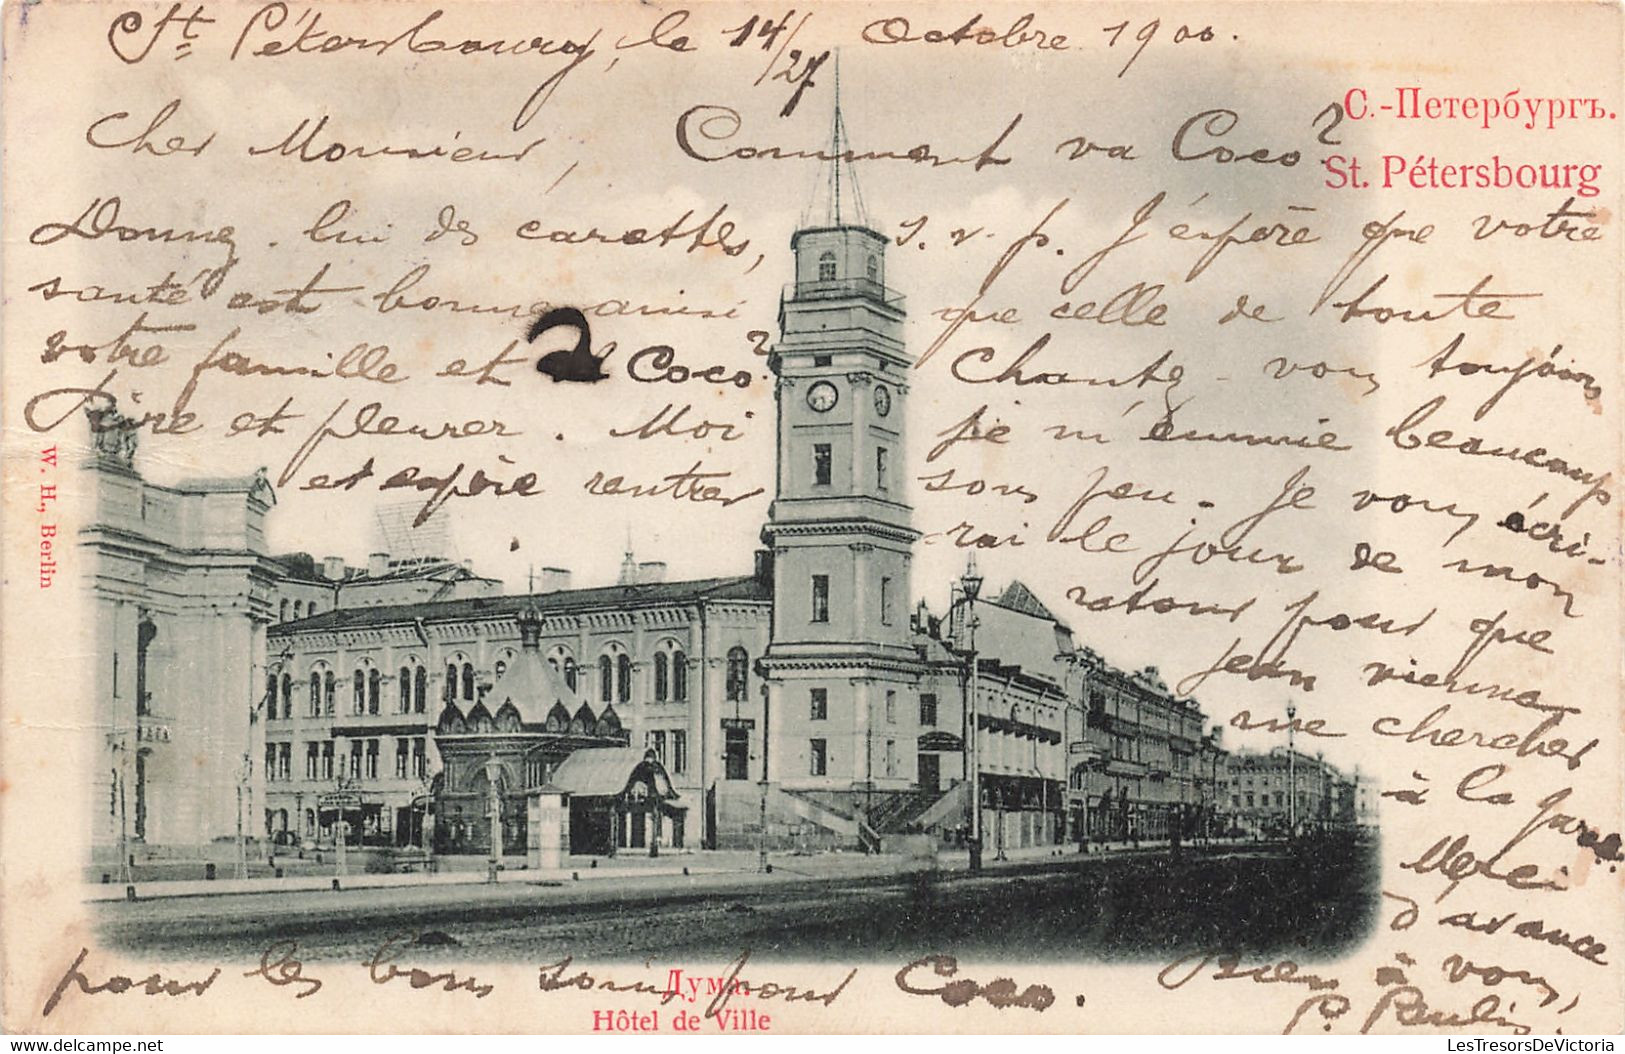 St Pétersbourg, le 14/27 Octobre 1900.
С.-Петербургъ.
St. Pétersbourg
Cher Monsieur, Comment va Coco?
Donnez lui des carottes, s. v. p. J'éspère que votre
santé est bonne ainsi que celle de toute
votre famille et Coco? Chantez-vous toujours
Rire et pleurer. Moi je m'ennuie beaucoup
et espère rentrer sous peu. Je vous écri-
rai le jour de mon
retour pour que
Jean vienne
me chercher
à la gare.
Merci
d'avance
pour les bons soins pour Coco. Bien à vous,
P. Paulis.
W. H., Berlin
Дума.
Hôtel de Ville
LesTresorsDeVictoria